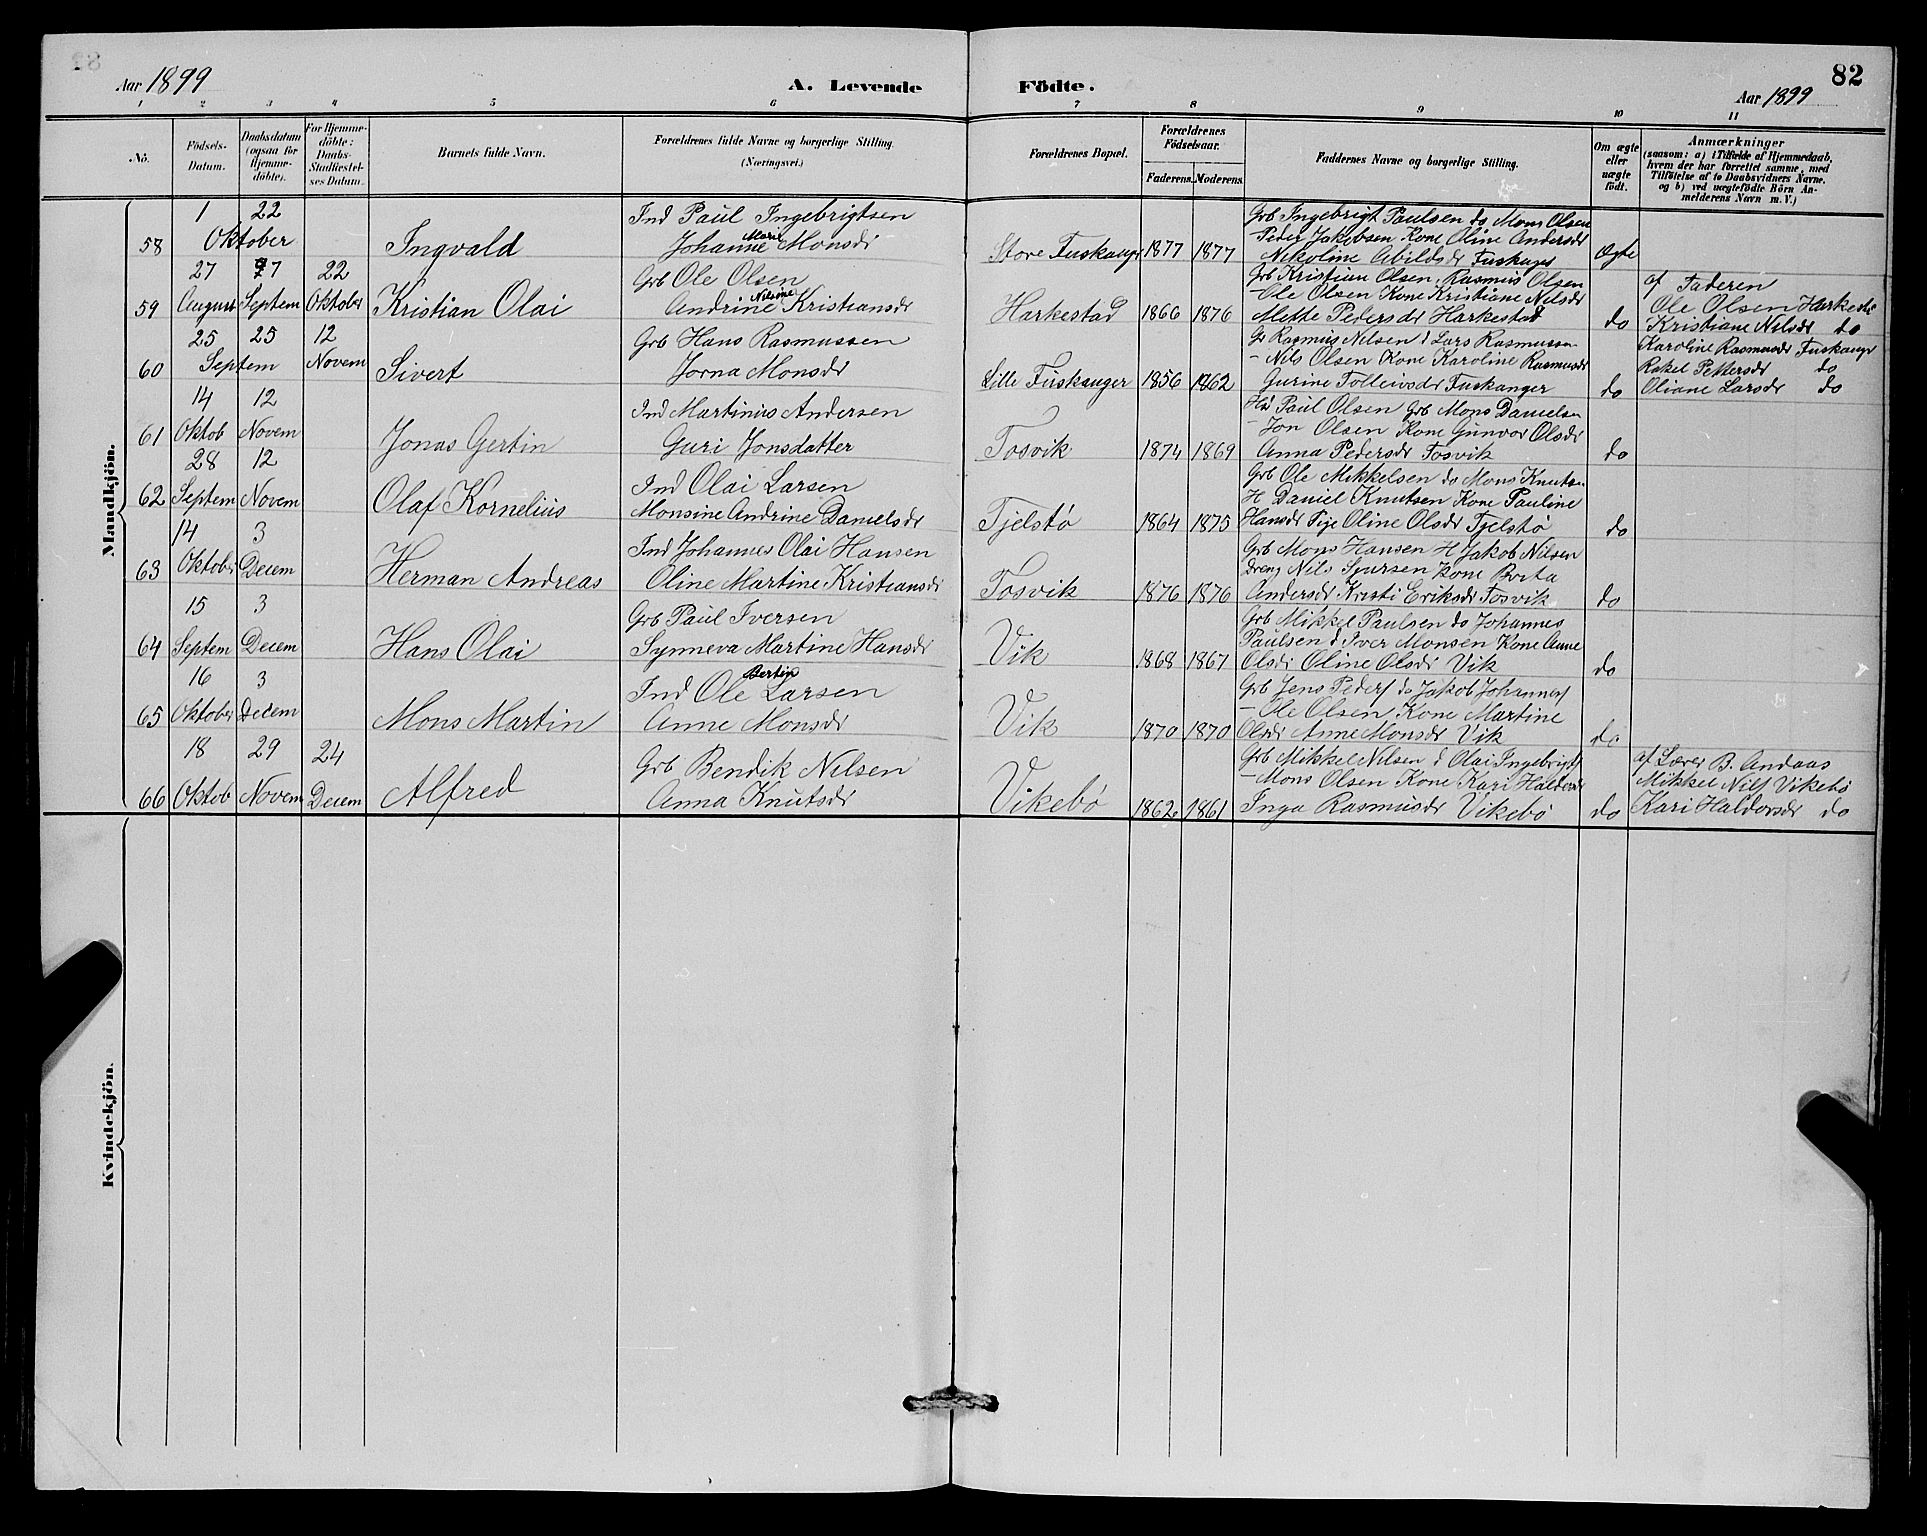 Aar 1899 A. Levende Födte. Aar 1899 82
1 2 3 4 5 6 7 8 9 10 11
No. Födsels-Datum. Daabsdatum (ogsaa for Hjemme-döbte). For Hjemme-döbte: Daabs-Stadfæstel-ses Datum. Barnets fulde Navn. Forældrenes fulde Navne og borgerlige Stilling. (Næringsvei.) Forældrenes Bopæl. Forældrenes Födselsaar. Faderens. Moderens. Faddernes Navne og borgerlige Stilling. Om ægte eller uægte födt. Anmærkninger (saasom: a) i Tilfælde af Hjemmedaab, hvem der har forrettet samme, med Tilföielse af to Daabsvidners Navne, og b) ved uægtefödte Börn An-melderens Navn m. V.)
Mandkjön.
58 1 Oktober 22 Ingvald
Ind Paul Ingebrigtsen
Johanne Marie Monsdr
Store Fuskanger 1877 1877
Grb Ingebrigt Paulsen do Mons Olsen
- Peder Jakobsen Kone Oline Andersdr
Nikoline Abildsdr Fuskanger
Ægte
59 27 August 7 Septem 22 Oktober Kristian Olai
Grb Ole Olsen
Andrine Nilsine Kristiansdr
Harkestad 1866 1876
Grb Kristian Olsen, Rasmus Olsen
- Ole Olsen Kone Kristiane Nilsdr
Mette Pedersdr Harkestad
do
af Faderen
Ole Olsen Harkestad
Kristiane Nilsdr do
60 25 Septem 25 12 Novem Sivert
Grb Hans Rasmussen
Jorna Monsdr
Lille Fuskanger 1856 1862
Gr Rasmus Nilsen d Lars Rasmussen
- Nils Olsen Kone Karoline Rasmusdr
Gurine Tolleivsdr Fuskanger
do
Karoline Rasmusdr Fuskanger
Rakel Pettersdr do
Oliane Larsdr do
61 14 Oktob 12 Novem Jonas Gertin
Ind Martinus Andersen
Guri Jonsdatter
Tosvik 1874 1869
Hd Paul Olsen Grb Mons Danielsen
- Jon Olsen Kone Gunvor Olsdr
Anna Pedersdr Tosvik
do
62 28 Septem 12 Novem Olaf Kornelius
Ind Olai Larsen
Monsine Andrine Danielsdr
Tjelstø 1864 1875
Grb Ole Mikkelsen do Mons Knutsen
H Daniel Knutsen Kone Pauline
Hansdr Pige Oline Olsdr Tjelstø
do
63 14 Oktober 3 Decem Herman Andreas
Ind Johannes Olai Hansen
Oline Martine Kristiansdr
Tosvik 1876 1876
Grb Mons Hansen H Jakob Nilsen
Dreng Nils Sjursen Kone Brita
Andersdr Kristi Eriksdr Tosvik
do
64 15 Septem 3 Decem Hans Olai
Grb Paul Iversen
Synneva Martine Hansdr
Vik 1868 1867
Grb Mikkel Paulsen do Johannes
Paulsen d Iver Monsen Kone Anne
Olsdr Oline Olsdr Vik
do
65 16 Oktober 3 Decem Mons Martin
Ind Ole Bertin Larsen
Anne Monsdr
Vik 1870 1870
Grb Jens Peders do Jakob Johannes
- Ole Olsen Kone Martine
Olsdr Anne Monsdr Vik
do
66 18 Oktob 29 Novem 24 Decem Alfred
Grb Bendik Nilsen
Anna Knutsdr
Vikebø 1862 1861
Grb Mikkel Nilsen d Olai Ingebrigts
- Mons Olsen Kone Kari Haldorsdr
Inga Rasmusdr Vikebø
do
af Lærer B. Andaas
Mikkel Nils Vikebø
Kari Haldorsdr do
Kvindekjön.